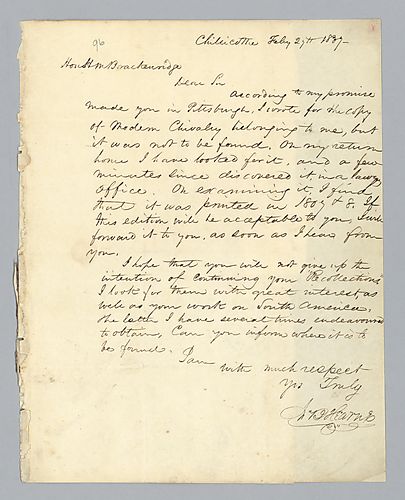 96
Chilicothe Feby 27th 1837-
Honl H m Brackenridge
Dear Sir
According to my promise
made you in Pittsburgh, I wrote for the copy
of Modern Chivalry belonging to me, but
it was not to be found. On my return
home I have looked for it, and a few
minutes since discovered it, in a lawyers
office. On examining it, I find
that it was printed in 1807 & 8. If
this edition will be acceptable to you, I will
forward it to you, as soon as I hear from
you.
I hope that you will not give up the
intention of continuing your "Recollections"
I look for them with great interest, as
well as your work on South America.
The latter I have several times endeavoured
to obtain, Can you inform where it is to
be found.
I am
with much respect
Yrs Truly